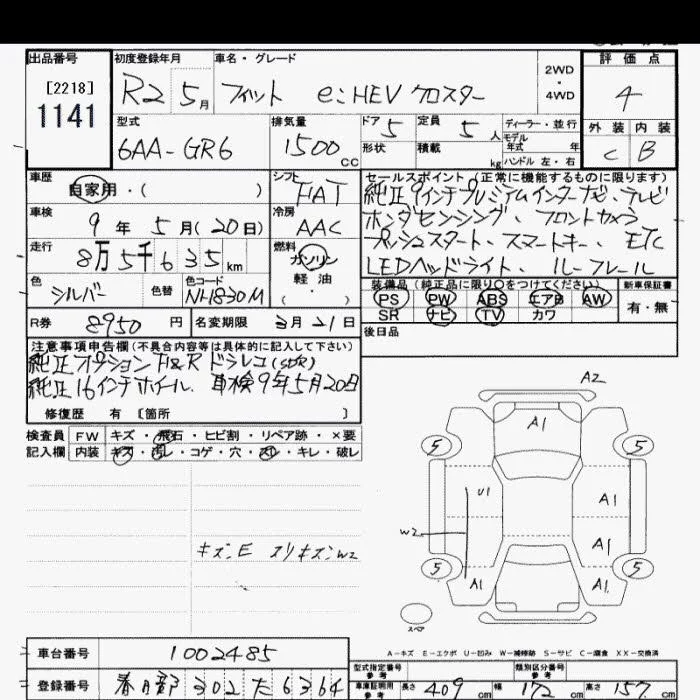 出品番号 初度登録年月 車名・グレード 評価点
[2218] 1141 R2 5月 フィット e:HEV クロスター 2WD・4WD 4
型式 排気量 ドア 5 定員 5人 ディーラー・並行 外装 内装
6AA-GR6 1500cc 形状 積載 kg モデル年式 年 C B
ハンドル 左・右
車歴 自家用・( ) シフト FAT セールスポイント(正常に機能するものに限ります)
純正9インチプレミアムインターナビ、テレビ
車検 9年5月(20日) 冷房 AAC ホンダセンシング、フロントカメラ
走行 8万5千635km 燃料 ガソリン 軽油 ( ) プッシュスタート、スマートキー、ETC
LEDヘッドライト、ルーフレール
色 シルバー 色替 色コード NH830M 装備品(純正品に限り○をつけてください) 新車保証書
PS PW ABS エアB AW 有・無
SR ナビ TV カワ
R券 8950円 名変期限 3月21日 後日品
注意事項申告欄(不具合内容等は具体的に記入して下さい)
純正オプションF&Rドラレコ(SDR)
純正16インチホイール、車検9年5月20日
修復歴 有 [箇所 ]
検査員 FW キズ・飛石・ヒビ割・リペア跡・×要
記入欄 内装 キズ・汚レ・コゲ・穴・スレ・キレ・破レ
キズ、E スリキズ、W2
A2
A1
5 5
U1 A1
W2 A1
5 5
A1 A1
スペア
A-キズ E-エクボ U-凹み W-補修跡 S-サビ C-腐食 XX-交換済
車台番号 1002485
型式指定番号 参考 類別区分番号 参考
登録番号 春日部 302 た 6364
車庫証明用 参考 長さ 409cm 幅 172cm 高さ 157cm